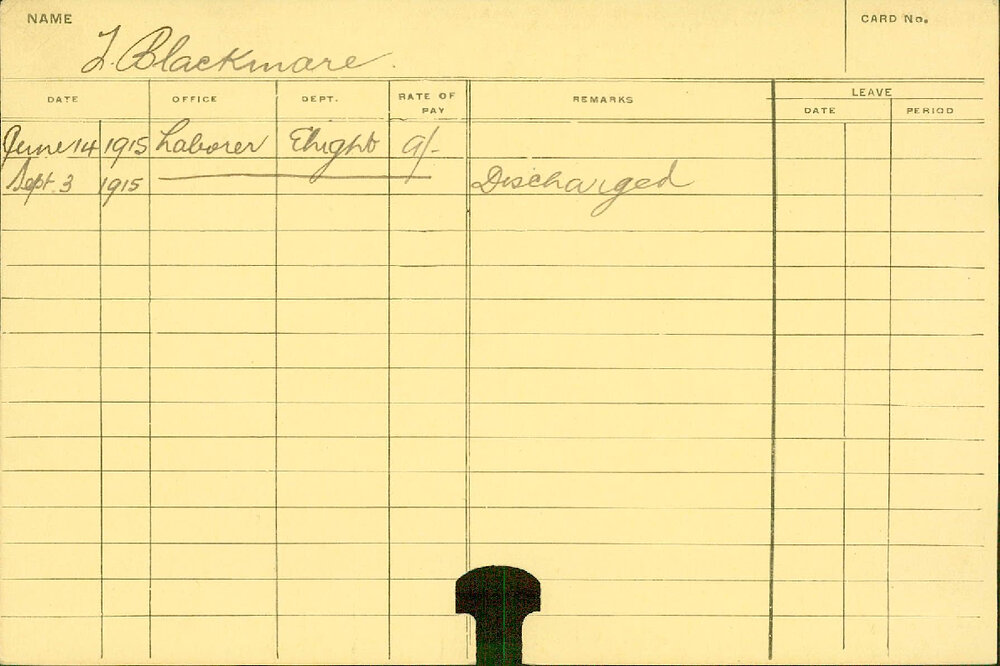 NAME
CARD No.
Blackmore
DATE OFFICE DEPT. RATE OF PAY REMARKS LEAVE
DATE PERIOD
June 14 1915 Laborer 9/-
Sept. 3 1915 Discharged